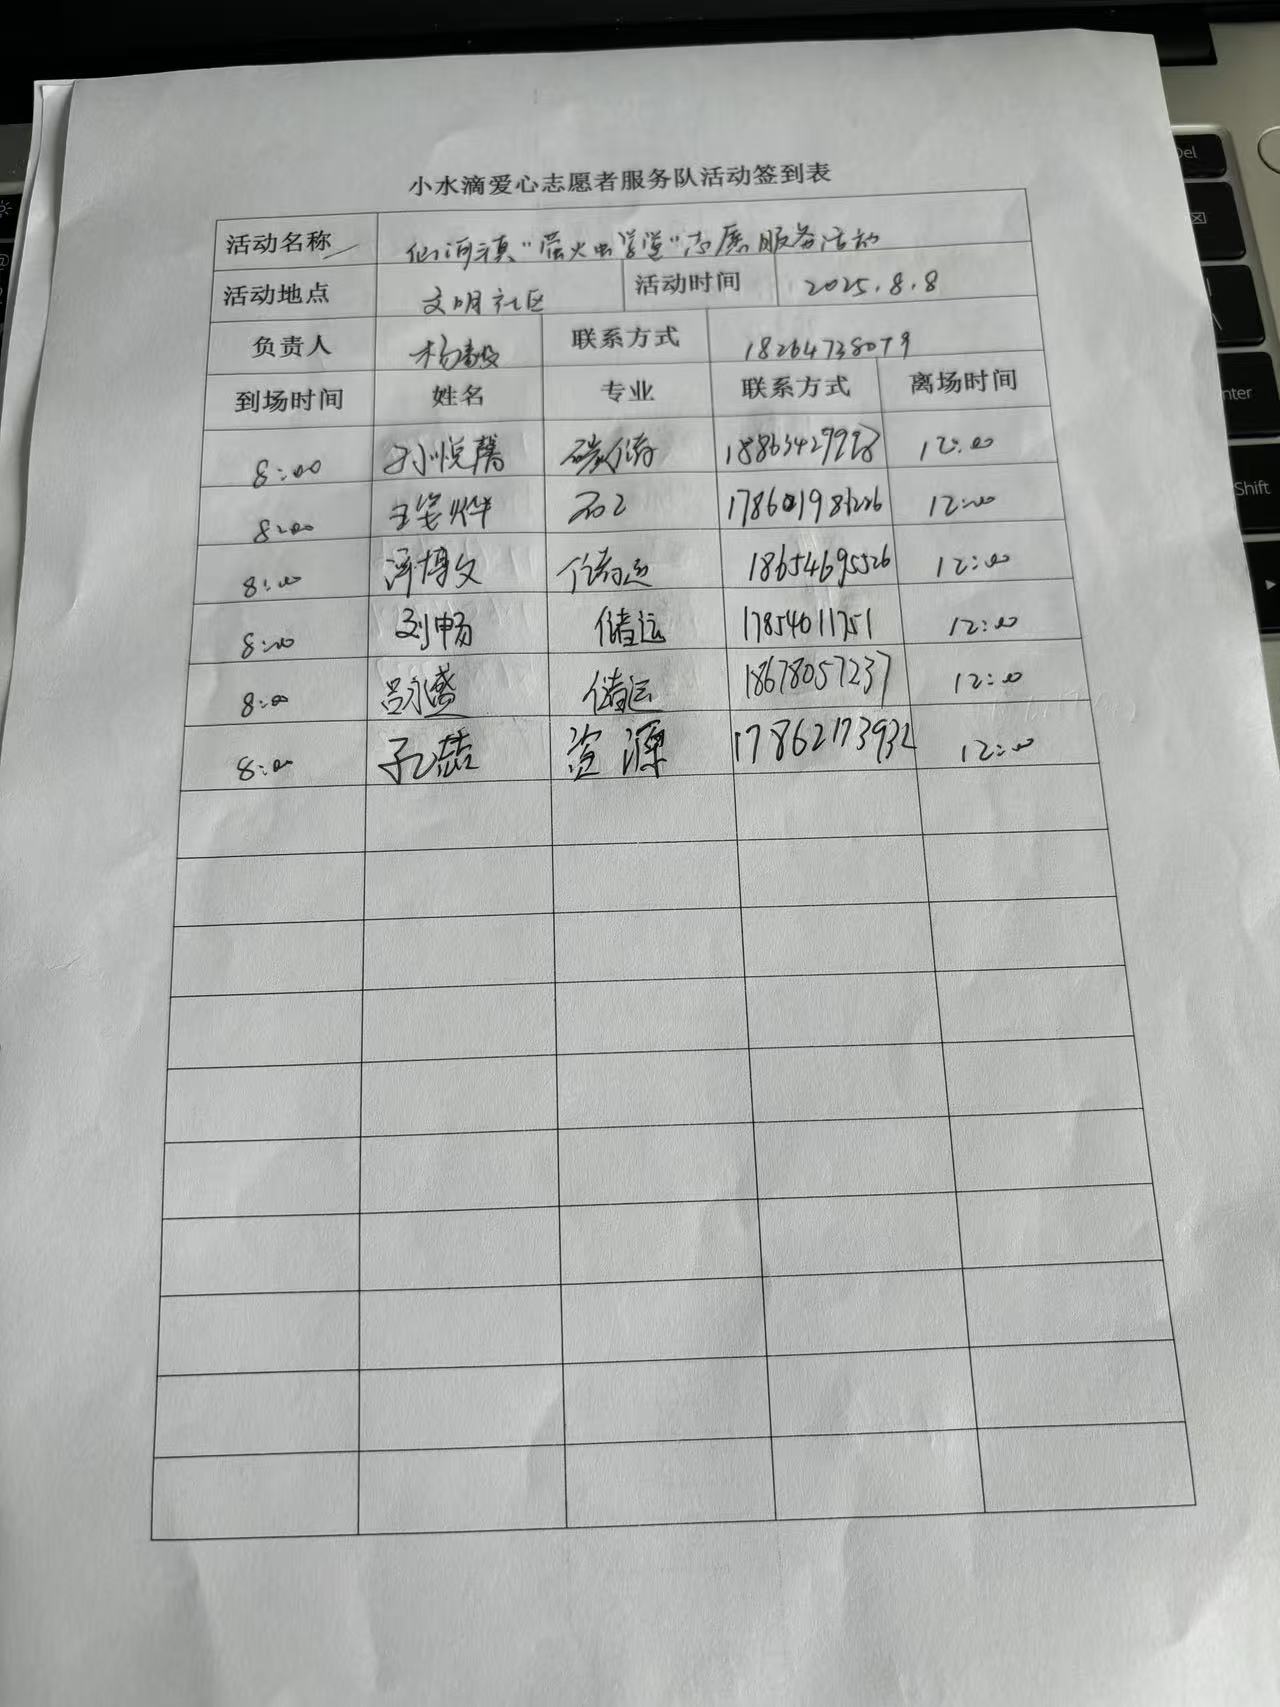 小水滴爱心志愿者服务队活动签到表
活动名称 仙河镇"萤火虫学堂"志愿服务活动
活动地点 文明社区 活动时间 2025.8.8
负责人 杨毅 联系方式 18264738079
到场时间 姓名 专业 联系方式 离场时间
8:00 孙悦馨 碳储 12:00
8:00 王 烨 石工 12:00
8:00 博文 储运 18654695526 12:00
8:00 刘畅 储运 17854011751 12:00
8:00 吕永盛 储运 18678057237 12:00
8:00 孔喆 资源 17862173932 12:00
Del
Enter
Shift